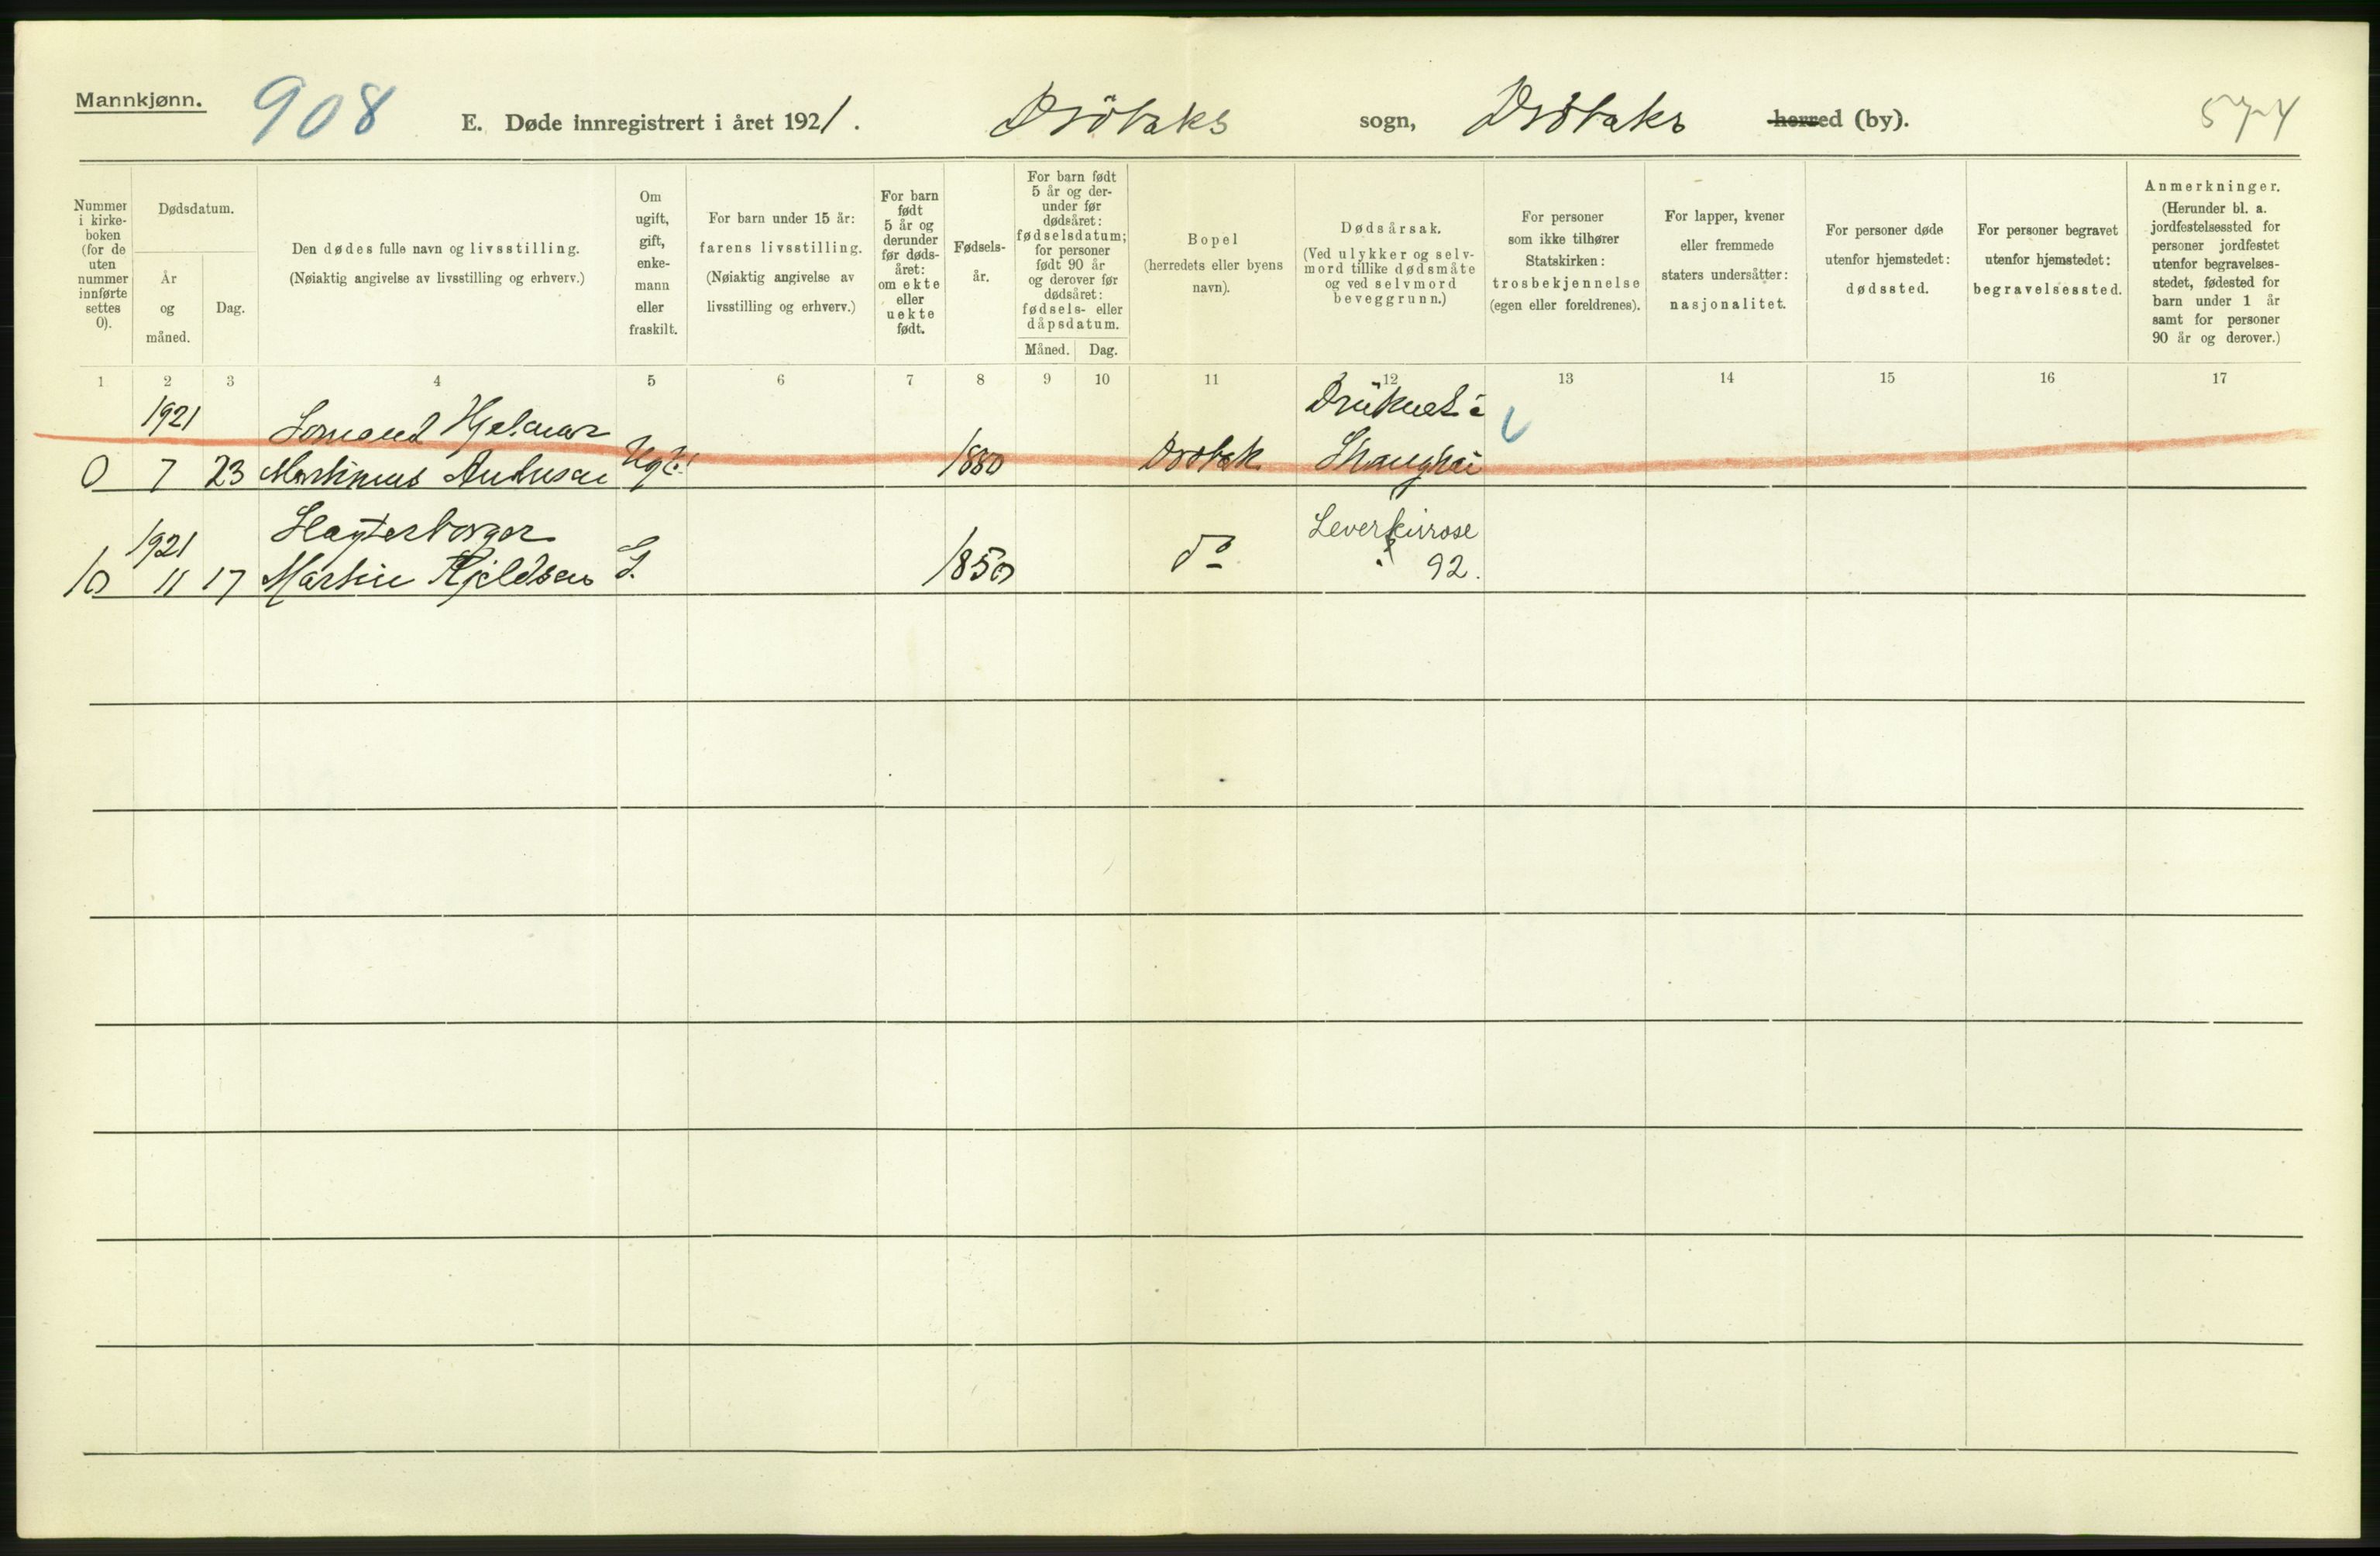 Mannkjønn.
908
E. Døde innregistrert i året 1921.
Dröbaks sogn, Dröbaks herred (by).
574
Nummer i kirke-
boken
(for de
uten
nummer
innførte
settes
0).
Dødsdatum.
År
og
måned.
Dag.
Den dødes fulle navn og livsstilling.
(Nøiaktig angivelse av livsstilling og erhverv.)
Om
ugift,
gift,
enke-
mann
eller
fraskilt.
For barn under 15 år:
farens livsstilling.
(Nøiaktig angivelse av
livsstilling og erhverv.)
For barn
født
5 år og
derunder
før døds-
året:
om ekte
eller
uekte
født.
Fødsels-
år.
For barn født
5 år og der-
under før
dødsåret:
fødselsdatum;
for personer
født 90 år
og derover før
dødsåret:
fødsels- eller
dåpsdatum.
Måned. Dag.
Bopel
(herredets eller byens
navn).
Dødsårsak.
(Ved ulykker og selv-
mord tillike dødsmåte
og ved selvmord
beveggrunn.)
For personer
som ikke tilhører
Statskirken:
trosbekjennelse
(egen eller foreldrenes).
For lapper, kvener
eller fremmede
staters undersåtter:
nasjonalitet.
For personer døde
utenfor hjemstedet:
dødssted.
For personer begravet
utenfor hjemstedet:
begravelsessted.
Anmerkninger.
(Herunder bl. a.
jordfestelsessted for
personer jordfestet
utenfor begravelses-
stedet, fødested for
barn under 1 år
samt for personer
90 år og derover.)
1 2 3 4 5 6 7 8 9 10 11 12 13 14 15 16 17
1921 Sömand Hjalmar Druknet i
0 7 23 Martinius Andersen Ugt. 1880 Drøbak Shanghai
1921 Slagterborger Levercirrose
10 11 17 Martin Kjeldsen G. 1850 do 92.